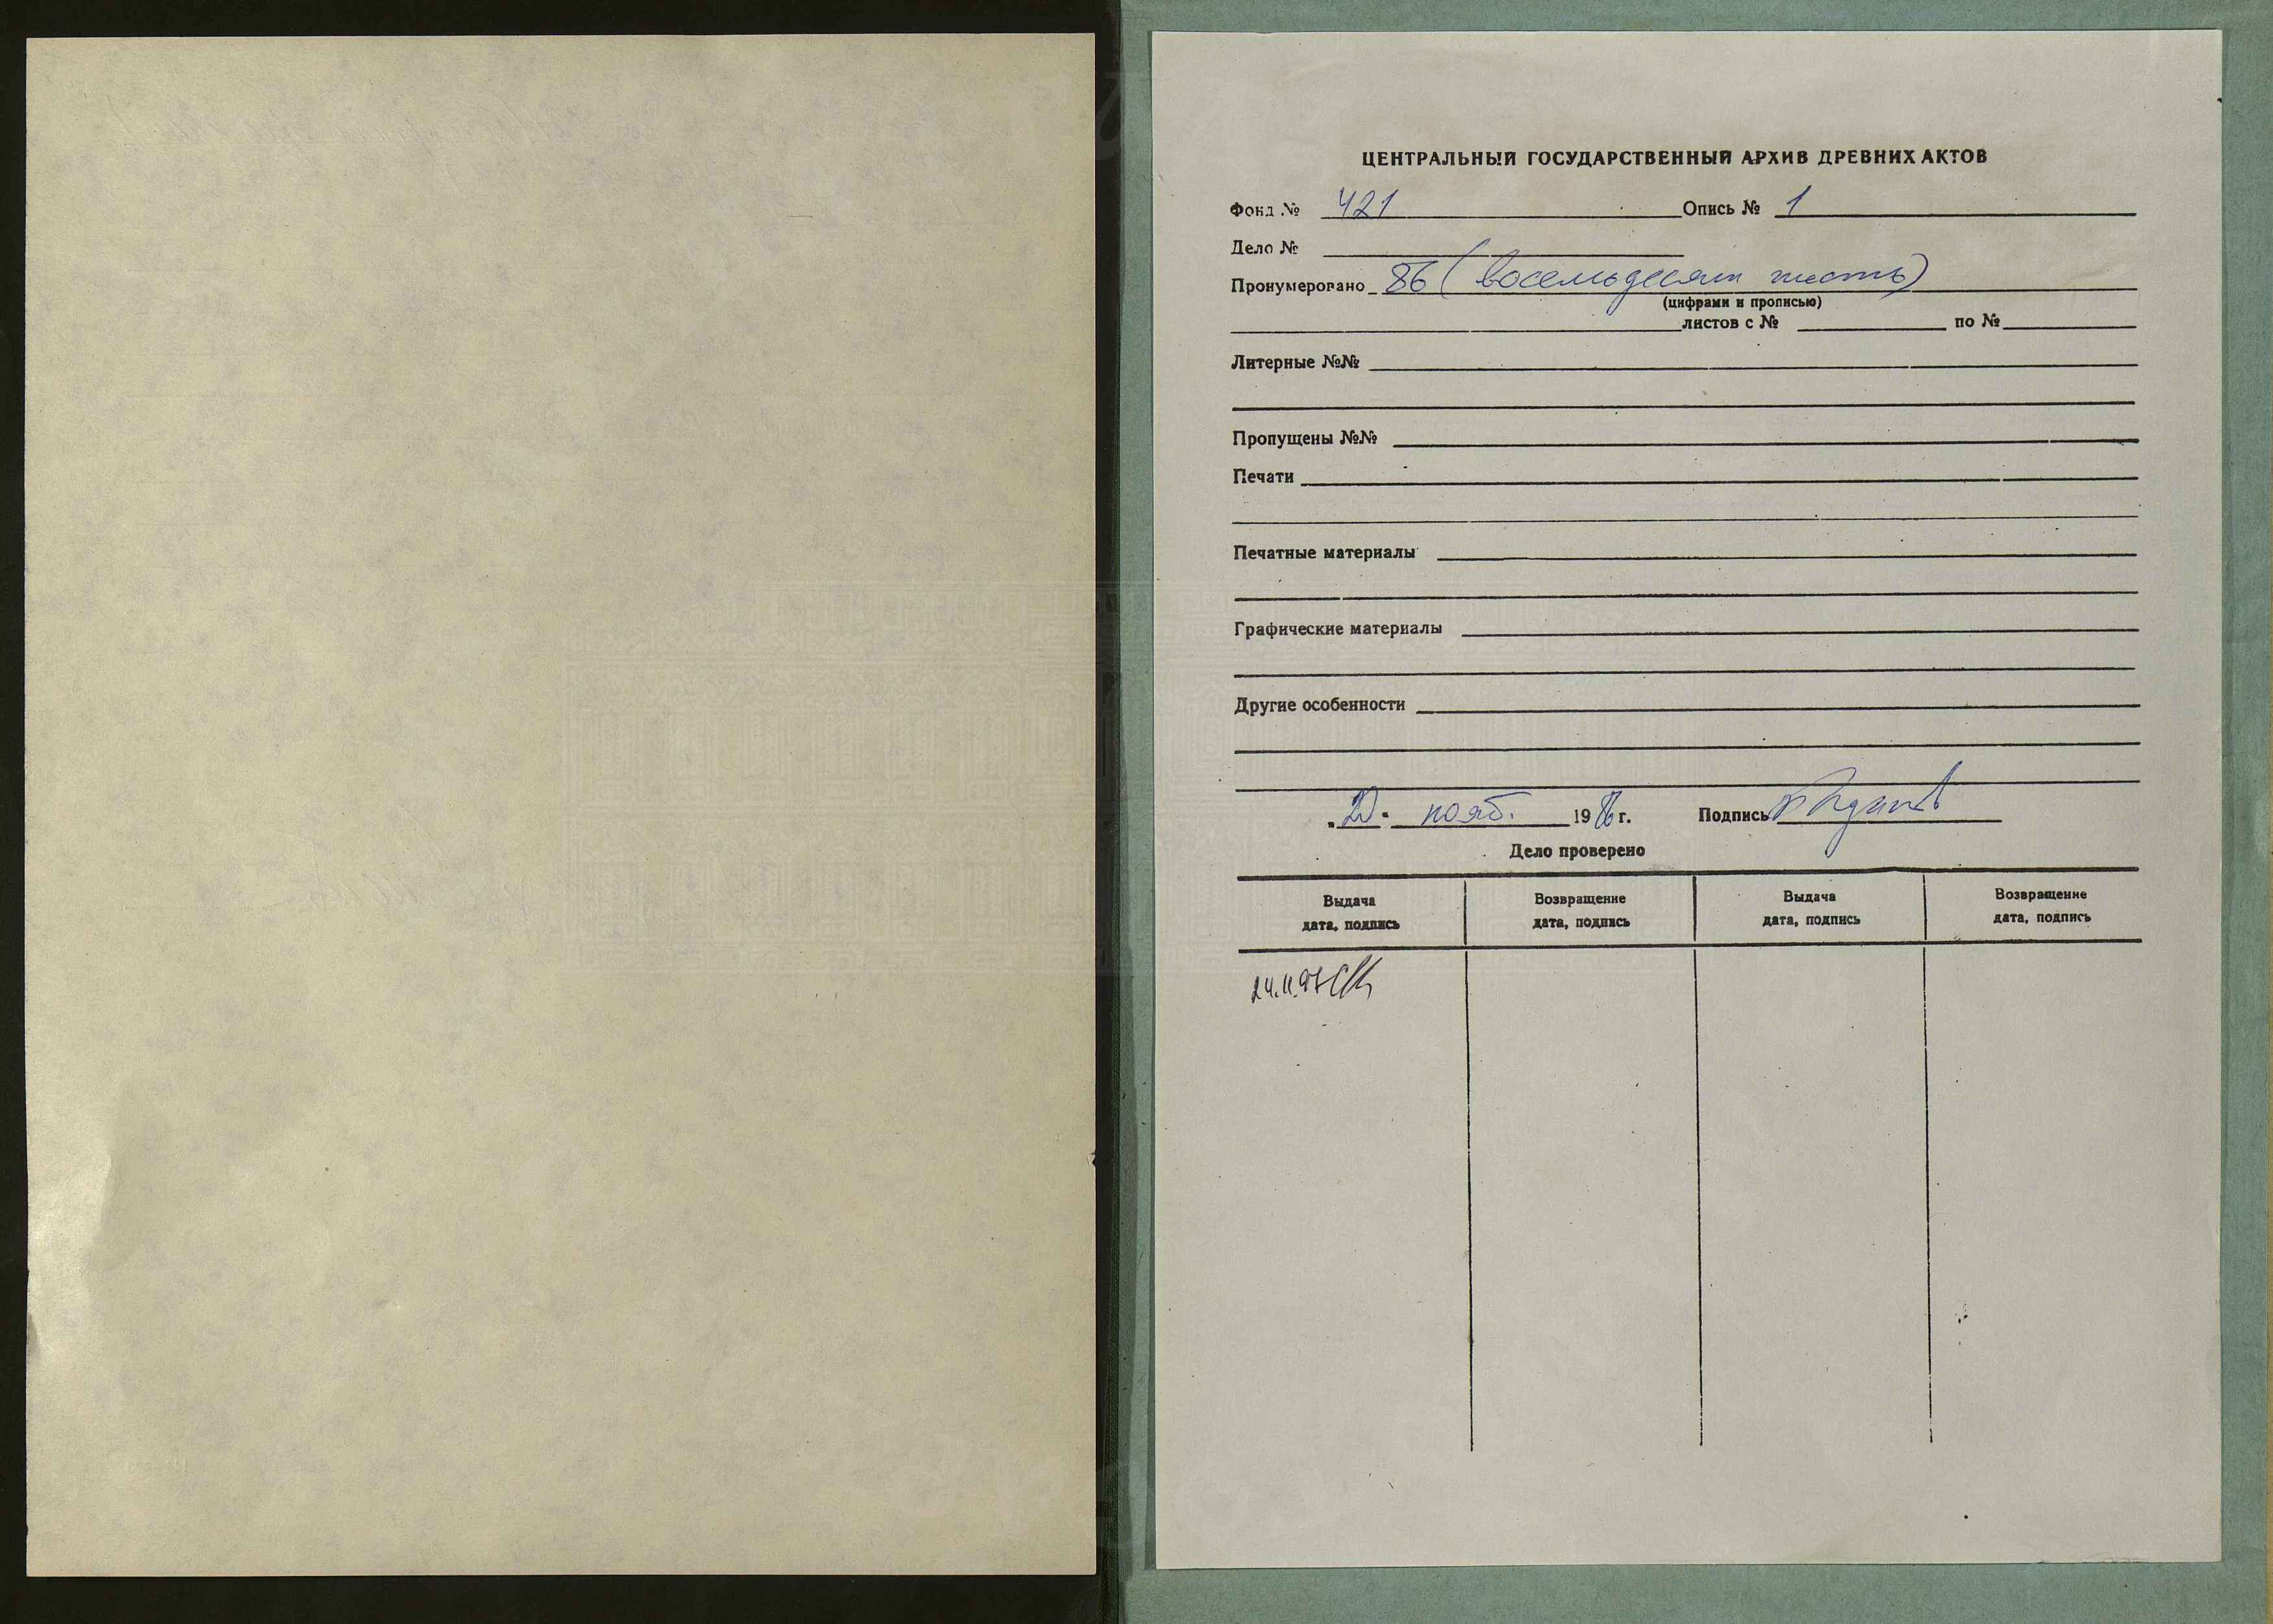 ЦЕНТРАЛЬНЫЙ ГОСУДАРСТВЕННЫЙ АРХИВ ДРЕВНИХ АКТОВ
Фонд № 421 Опись № 1
Дело №
Пронумеровано 86 (восемьдесят шесть)
(цифрами и прописью)
листов с № по №
Литерные №№
Пропущены №№
Печати
Печатные материалы
Графические материалы
Другие особенности
нояб. 1986 г. Подпись
Дело проверено
Выдача Возвращение Выдача Возвращение
дата, подпись дата, подпись дата, подпись дата, подпись
24.11.97